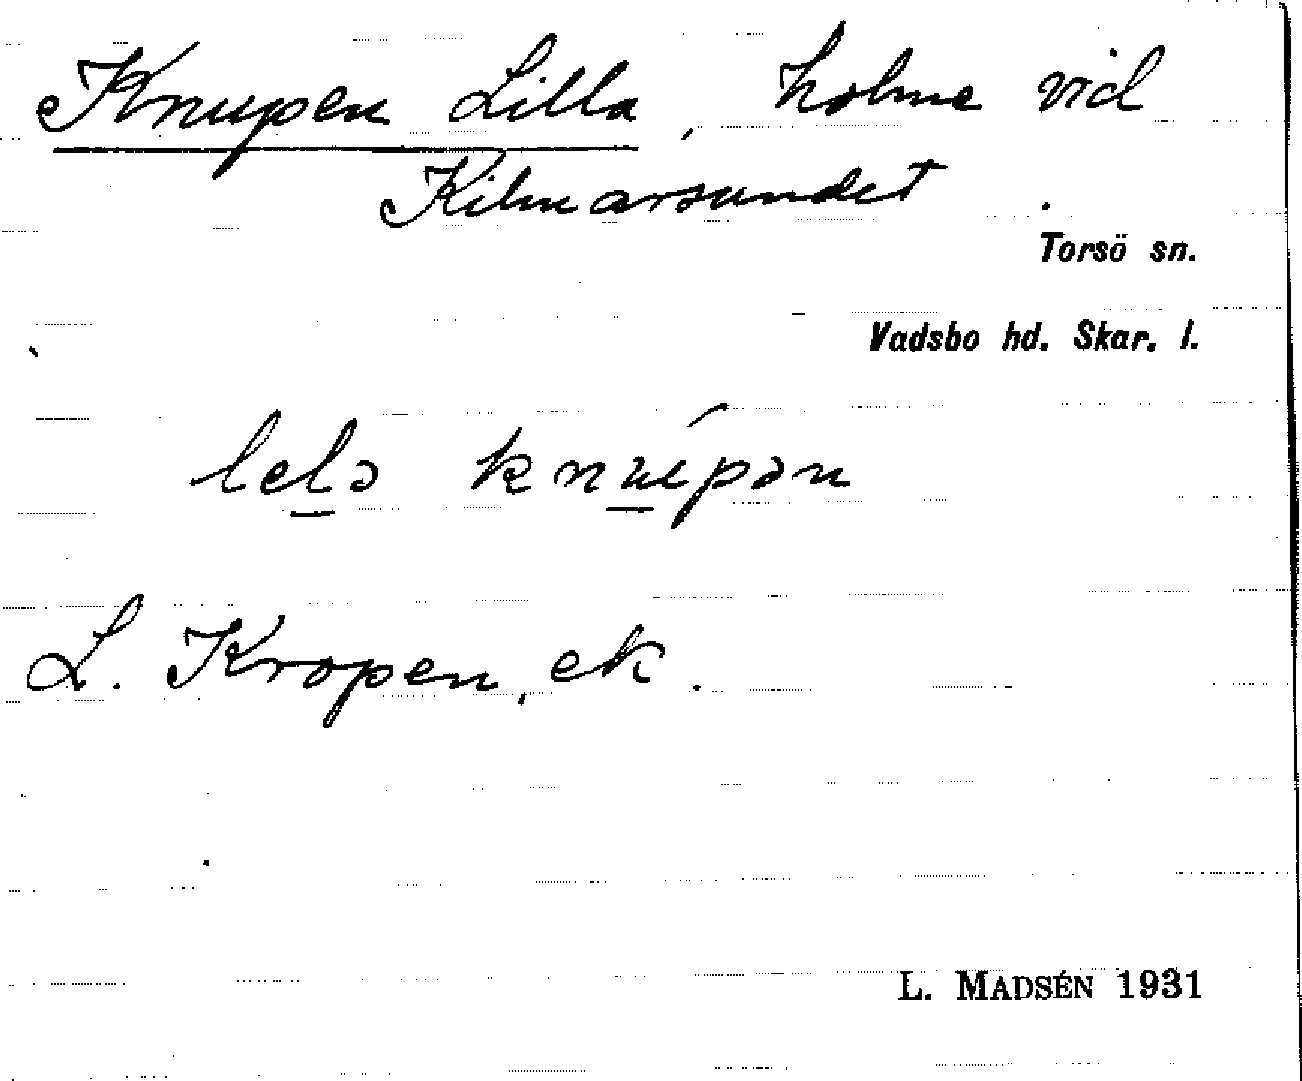 Knupen Lilla, holme vid
Kilmarsundet.
Torsö sn.
Vadsbo hd. Skar. l.
lelə knúpən
L. Kropen, ek.
L. MADSÉN 1931